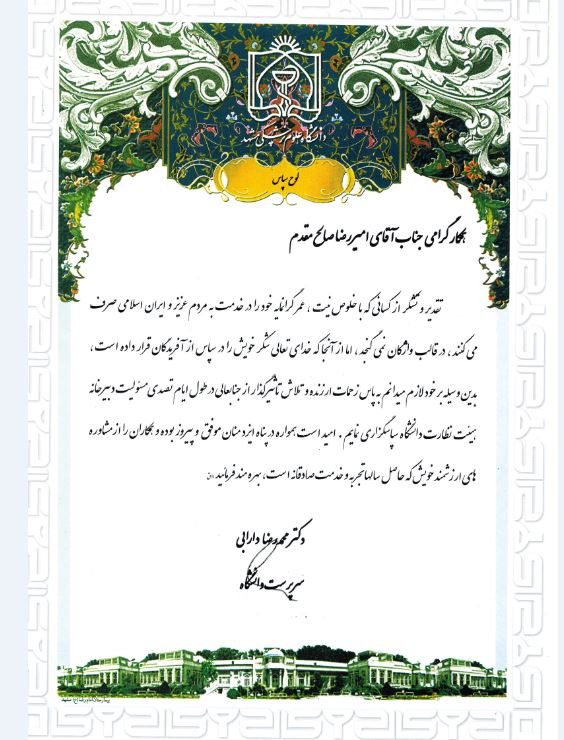 دانشگاه علوم پزشکی مشهد
لوح سپاس
همکار گرامی جناب آقای امیررضا صالح مقدم
تقدیر و تشکر از کسانی که با خلوص نیت ، عمر گرانمایه خود را در خدمت به مردم عزیز و ایران اسلامی صرف
می کنند ، در قالب واژگان نمی گنجد ، اما از آنجا که خدای تعالی شکر خویش را در سپاس از آفریدگان قرار داده است ،
بدین وسیله بر خود لازم میدانم به پاس زحمات ارزنده و تلاش تأثیرگذار از جنابعالی در طول ایام تصدی مسئولیت دبیرخانه
هیئت نظارت دانشگاه سپاسگزاری نمایم . امید است همواره در پناه ایزد منان موفق و پیروز بوده و همکاران را از مشاوره
های ارزشمند خویش که حاصل سالها تجربه و خدمت صادقانه است، بهره مند فرمائید
دکتر محمدرضا دارابی
سرپرست دانشگاه